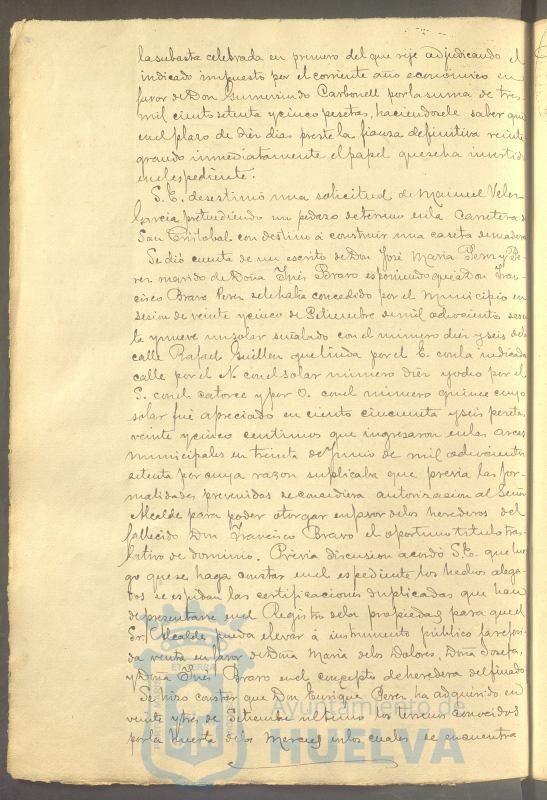 la subasta celebrada en primero del que rije adjudicando el
indicado impuesto por el corriente año economico en
favor de Don Gumersindo Carbonell por la suma de tres
mil ciento setenta y cinco pesetas, haciendosele saber que
en el plazo de diez dias preste la fianza definitiva reinte
grando inmediatamente el papel que se ha invertido
en el espediente.
S. E. desestimó una solicitud de Manuel Velez
Garcia pretendiendo un pedazo de terreno en la Carretera de
San Cristobal con destino á construir una caseta de madera
Se dió cuenta de un escrito de Don José Maria Perez y Pe
rez marido de Doña Inés Bravo esponiendo que á Don Fran-
cisco Bravo Perez se le habia concedido por el Municipio en
sesion de veinte y cinco de Setiembre de mil ochocientos sesen
ta y nueve un solar señalado con el número diez y seis de la
calle Rafael Guillen que linda por el E. con la indicada
calle por el N. con el solar número diez y ocho por el
S. con el catorce y por O. con el número quince cuyo
solar fué apreciado en ciento cincuenta y seis pesetas
veinte y cinco centimos que ingresaron en las arcas
municipales en treinta de Junio de mil ochocientos
setenta por cuya razon suplicaba que previa las for-
malidades prevenidas se concediera autorizacion al Señor
Alcalde para poder otorgar en favor de los herederos del
fallecido Don Francisco Bravo el oportuno titulo tras
lativo de dominio. Previa discusion acordó S. E. que lue
go que se haga constar en el espediente los hechos alega-
dos se espidan las certificaciones duplicadas que han
de presentarse en el Registro de la propiedad para que el
Sr. Alcalde pueda elevar á instrumento público la referi
da venta en favor de Doña Maria de los Dolores, Doña Josefa,
y Doña Inés Bravo en el concepto de heredera del finado
Se hizo constar que Don Enrique Perez ha adquirido en
veinte y tres de Setiembre ultimo los terrenos conocidos
por la Huerta de la Merced en los cuales se encuentra
Ayuntamiento de
HUELVA